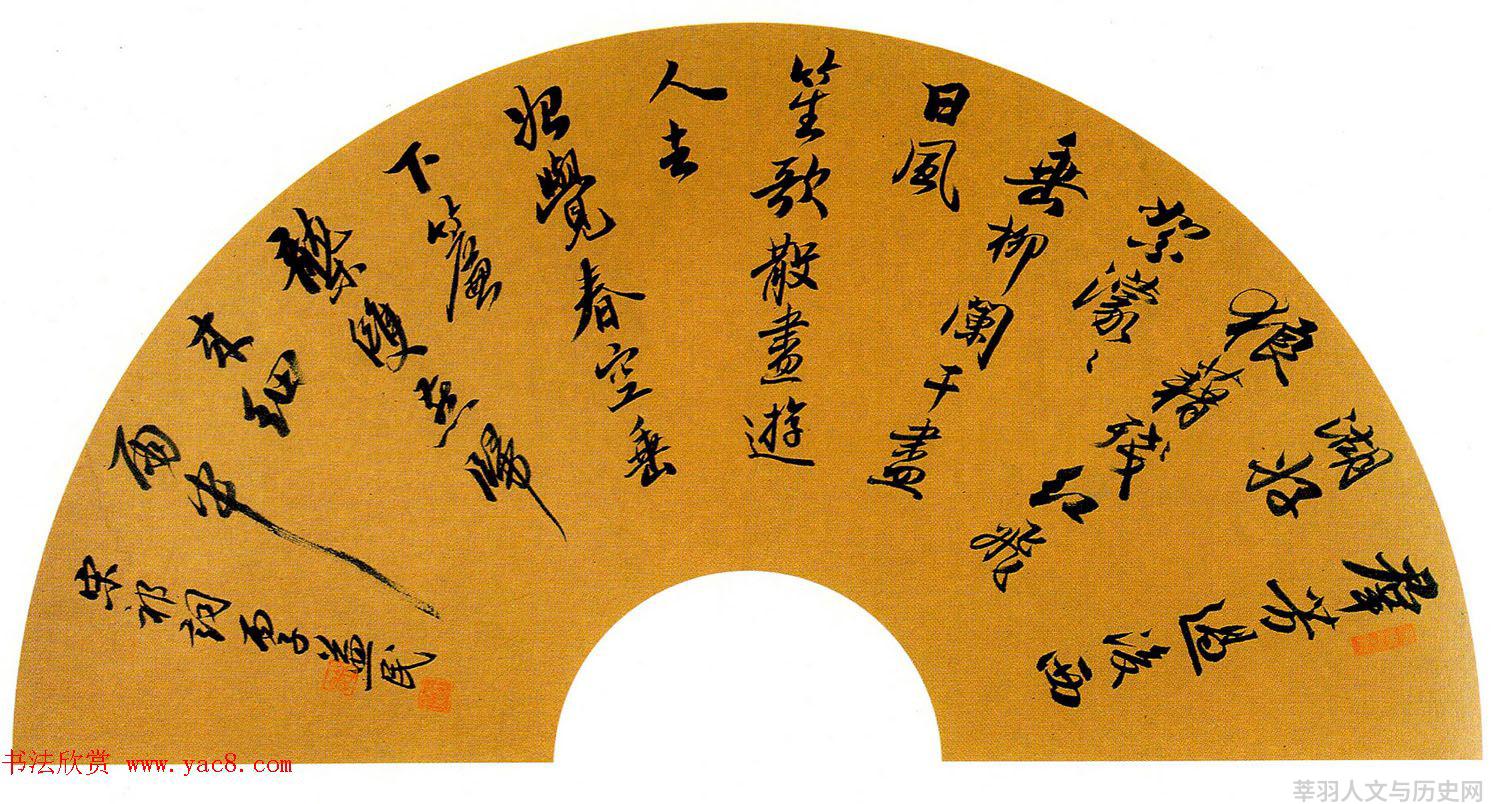 群芳過後西
湖好
狼藉殘紅飛
絮濛〻
垂柳闌干盡
日風
笙歌散盡遊
人去
始覺春空垂
下簾
櫳雙燕歸
來細
雨中
宋祁詞 丙子
书法欣赏 www.yac8.com
莘羽人文与历史网